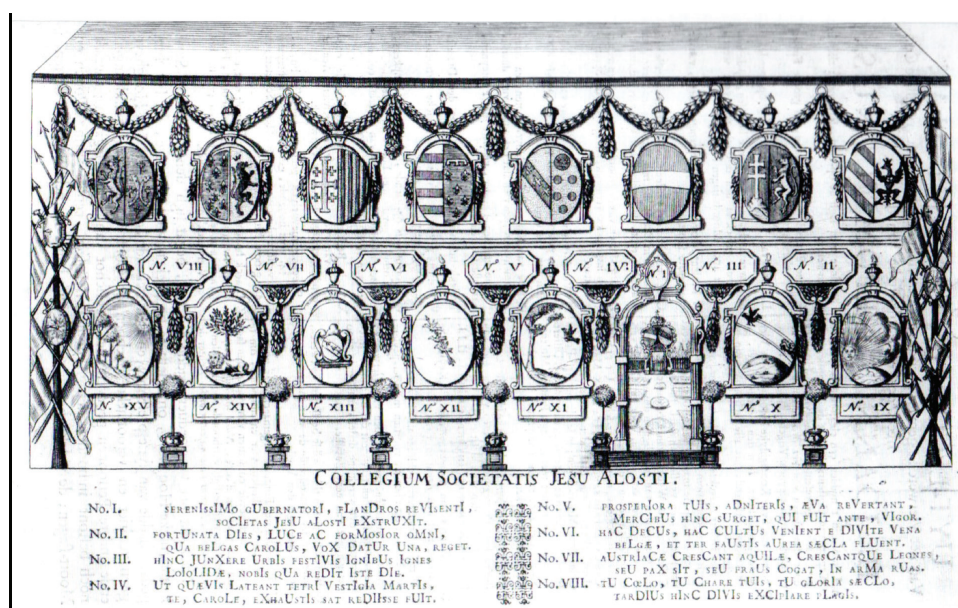 Nº. VIII
Nº. VII
Nº. VI
Nº. V
Nº. IV.
Nº I
Nº. III
Nº. II
Nº. XV
Nº. XIV
Nº. XIII
Nº. XII
Nº. XI
Nº. X
Nº. IX
COLLEGIUM SOCIETATIS JESU ALOSTI.
No. I. sERENIssIMo gUBernatorI, FLanDros reVIsentI,
soCIetas JesU aLostI eXstrUXIt.
No. II. forTUnata DIes, LUCe aC forMosIor oMnI,
qUa beLgas CaroLUs, VoX DatUr Una, reget.
No. III. hInC JUnXere UrbIs festIVIs IgnIbUs Ignes
LoIoLIDæ, nobIs qUa reDIt Iste DIe.
No. IV. Ut qUæVIs Lateant tetrI VestIgIa MartIs,
te, CaroLe, eXhaUstIs sat reDIIsse fUIt.
No. V. prosperIora tUIs, aDnIterIs, æVa reVertant,
MerCIbUs hInC sUrget, qUI fUIt ante, VIgor.
No. VI. haC DeCUs, haC CULtUs VenIent e DIVIte Vena
beLgæ, et ter faUstIs aUrea sæCLa fLUent.
No. VII. aUstrIaCæ CresCant aqUILæ, CresCantqUe Leones,
seU paX sIt, seU fraUs Cogat, In arMa rUas.
No. VIII. tU CœLo, tU Chare tUIs, tU gLorIa sæCLo,
tarDIUs hInC DIVIs eXCIpIare pLagIs.